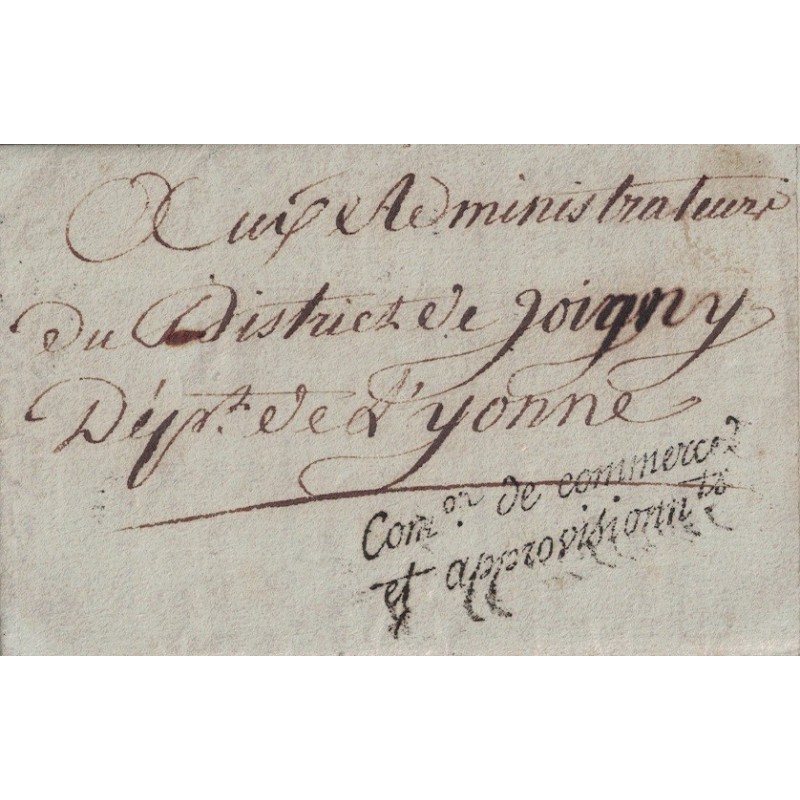 Aux Administrateurs
du District de Joigny
Dépt. de L'yonne
Com.on de commerce
et approvisionn.ts